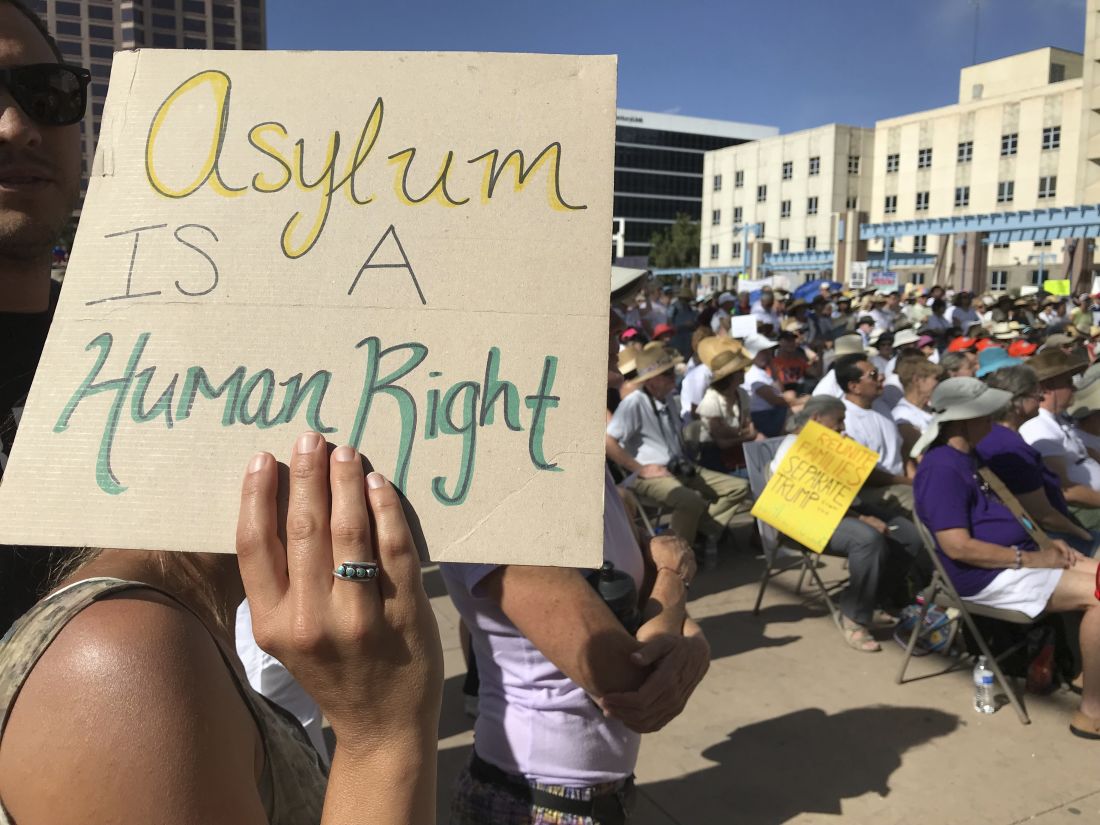 Asylum
IS A
Human Right
REUNITE
FAMILIES
SEPARATE
TRUMP...